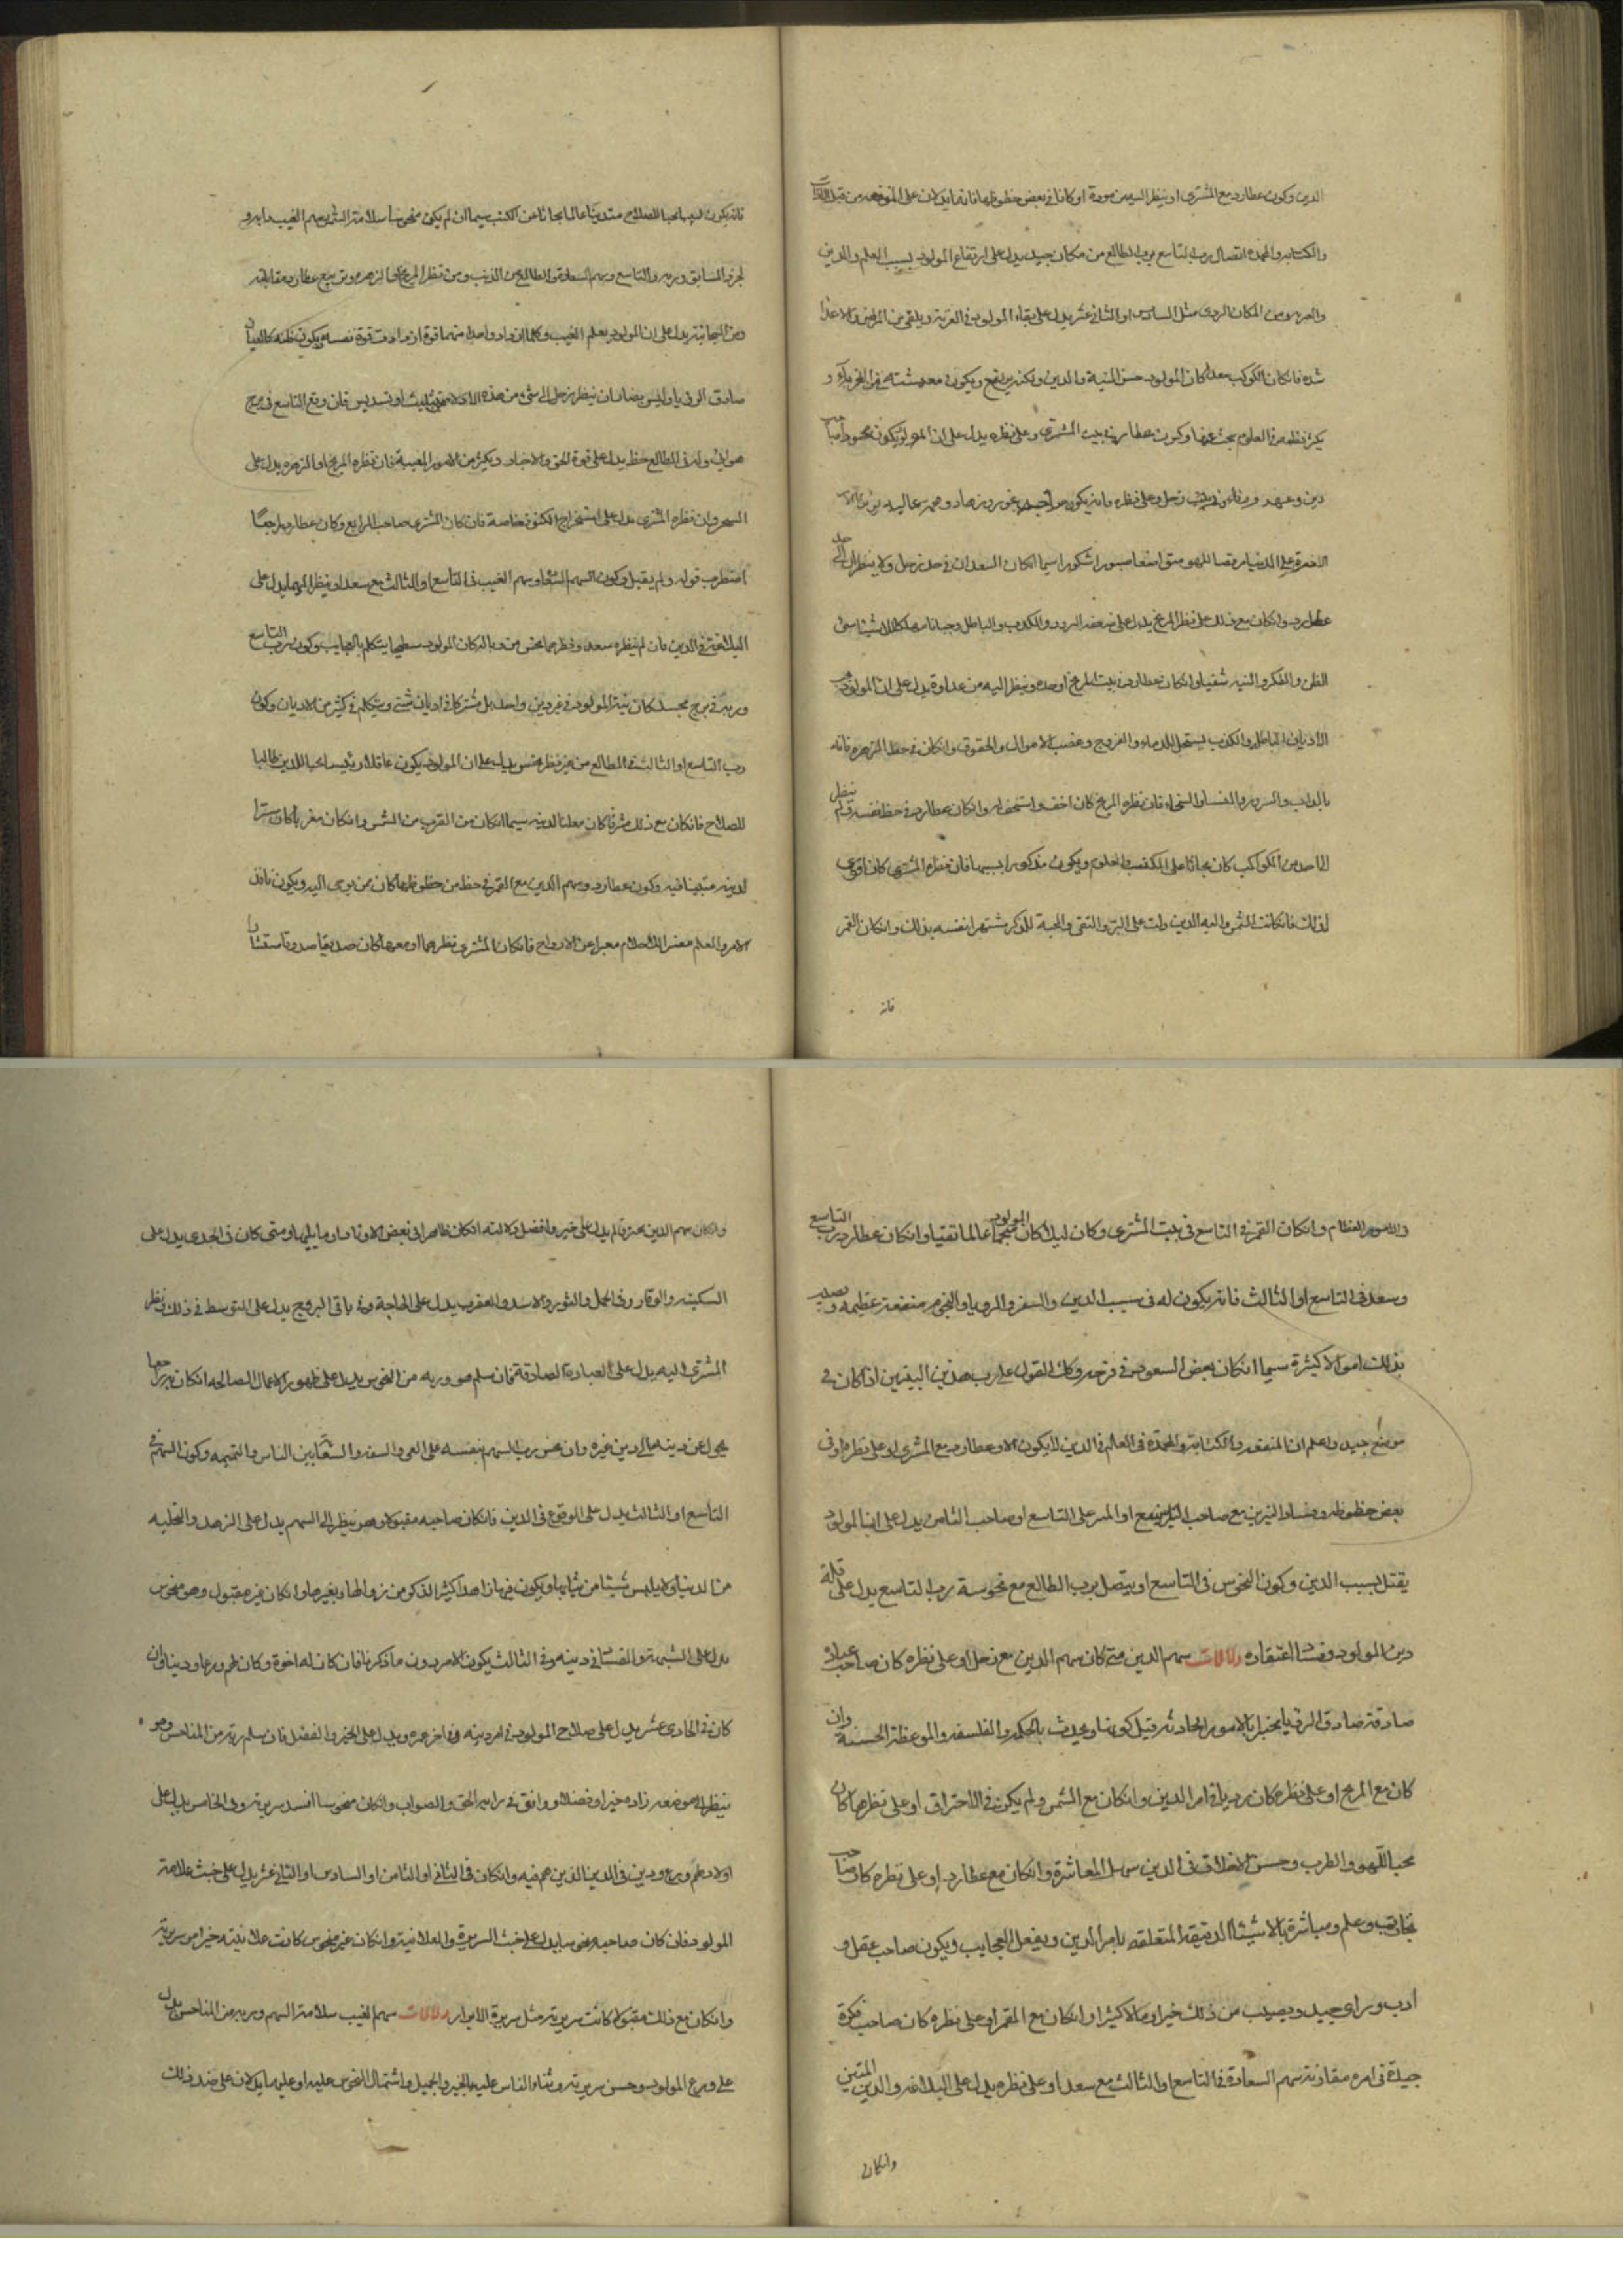 الدين وكون عطارد مع المشتري او ينظر اليه من مودة او كانا في بعض حظوظهما فانهما يدلان على المنفعه من قبل
والكتابه والمحمدة اتصال رب التاسع برب الطالع من مكان جيد يدل على ارتفاع المولود بسبب العلم والدين
ومن المكان الردي مثل السادس او الثاني عشر يدل على بقاء المولود في الغربة ويلقى من المرض والاعدا
شده فان كان الكوكب سعدا كان المولود حسن النية والدين ويكون معيشته في الغربة و
يكثر نظره في العلوم بحث عنها وكون عطارد في بيت المشتري وعلى نظره يدل على ان المولود يكون محمودا صاحب
دين وعهد ووفاء وفي بيت زحل وعلى نظره فانه يكون صاحب غور وزهاد وهمه عاليه
الاخرة على الدنيا رفضا للهو متواضعا صبورا شكورا سيما ان كان السعدان في حد زحل ولا ينظر الى
عطارد وان كان مع ذلك على نظر المريخ يدل على الزور والكذب والباطل سيئ
الظن والفكر والنيه شقيا وان كان عطارد في بيت المريخ او حده وينظر اليه من عداوة يدل على ان المولود يحب
الاديان الباطل والكذب يستحل الدماء والفروج وغصب الاموال والحقوق وان كان في حظ الزهره فانه
والسرور والنساء والسخاء فان نظره المريخ كان اخف واستخف وان كان عطارد في حظ نفسه ولم ينظر
الى احد من الكواكب كان بحاثا على الكتب والعلوم ويكون مذكورا بسببها فان نظره المشتري كان اقوى
لذلك فان كانت الشمس واليه الدين دلت على البر والتقى والمحبة للذكر مشتهرا نفسه بذلك وان كان القمر
فانه
فانه يكون لبيبا محبا للصلاح متدينا عالما بحاثا عن الكتب سيما ان لم يكن منحوسا سلامة الشمس وسهم الغيب
الجزو السابق وربه والتاسع وسهم السعادة والطالع عن الذنب ومن نظر المريخ او الزهره وتربيع عطارد ومقابلته
يدل على ان المولود يعلم الغيب وكلما ازداد واحد منهما قوة ازدادت قوة نفسه ويكون ظنه كالعيان
صادق الرويا وليس يضاد ان ينظر زحل الى شي من هذه الادلاء بتثليث او تسديس فان وقع التاسع في برج
هوائي وله في الطالع حظ يدل على قوة الحق والاخبار وبكثير من الامور المغيبة فان نظره المريخ او الزهره يدل على
السحر وان نظره المشتري يدل على استخراج الكنوز خاصة فان كان المشتري صاحب الرابع وكان عطارد راجعا
اضطرب قوله ولم يقبل وكون سهم السعادة وسهم الغيب في التاسع او الثالث مع سعد او نظر اليهما يدل على
البلاغة في الدين فان لم ينظره سعد ونظرهما نحس كان المولود يتكلم بالعجايب وكون رب التاسع
وربه في برج مجسد كان نية المولود في غير دين واحد بل مشتركا في اديان شتى ويتكلم في كثير من الاديان وكون
رب التاسع او الثالث في الطالع من غير نظر نحس دليل على ان المولود يكون عاقلا رئيسا محبا للدين طالبا
للصلاح فان كان مع ذلك مشرقا كان معلنا لدينه سيما ان كان من القرب من الشمس وان كان مغربا كان مسترا
لدينه متدينا فيه وكون عطارد وسهم الدين مع القمر في حظ من حظوظهما كان ممن يوحى اليه ويكون نافذ
الامر والعلم مفسرا للاحلام معبرا عن الارواح فان كان المشتري نظرهما او معهما كان صديقا صدوقا
والامور العظام وان كان القمر في التاسع في بيت المشتري وكان ليلا كان المولود منجما عالما تقيا وان كان عطارد رب التاسع
وسعد في التاسع او الثالث فانه يكون له في سبب الدين والسفر والرويا والنجوم منفعة عظيمه ويصيب
بذلك اموالا كثيرة سيما ان كان بعض السعود في فرحه وكذلك القول على رب هذين البيتين اذا كان في
موضع جيد واعلم ان المنفعه والكتابة والمحمدة في العالم في الدين لا يكون الا وعطارد مع المشتري او على نظره او في
بعض حظوظه وفساد النيرين مع صاحب التاسع او صاحب الثامن يدل على ان المولود
يقتل بسبب الدين وكون النحوس في التاسع او يتصل برب الطالع مع نحوسة رب التاسع يدل على قلة
دين المولود وفساد اعتقاده دلالات سهم الدين متى كان سهم الدين مع زحل او على نظره كان صاحب عبادة
صادقة صادق الرويا مخبرا بالامور الحادثه قبل كونها ويحدث بالحكمه والفلسفه والموعظة الحسنة وان
كان مع المريخ او على نظره كان رديا في امر الدين وان كان مع الشمس ولم يكن في الاحتراق او على نظرها كان
محبا للهو والطرب وحسن الاخلاق في الدين سهل المعاشرة وان كان مع عطارد او على نظره كان صاحب
وعلم ومباشرة بالاشياء الدقيقة المتعلقه بامر الدين ويفعل العجايب ويكون صاحب عقل و
ادب وراي جيد ويصيب من ذلك خيرا ومالا كثيرا وان كان مع القمر او على نظره كان صاحب فكرة
جيدة في امره مقارنة سهم السعادة في التاسع او الثالث مع سعد او على نظره يدل على البلاغه والدين المتين
وان كان
وان كان سهم الدين بحيز قائم يدل على خير وافضل دلالته ان كان ظاهرا في بعض الاوتاد او ما يليها ومتى كان في الجدي يدل على
السكينه والوقار وفي الحمل والثور والاسد والعقرب يدل على الحاجة وفي باقي البروج يدل على التوسط في ذلك ونظر
المشتري اليه يدل على العبادة الصادقة فان سلم هو وربه من النحوس يدل على ظهور الاعمال الصالحه ان كان راجعا
يحول عن دينه الى دين غيره وان نحس رب السهم بنفسه على العمى والسفه والسعاية بين الناس والنميمه وكون السهم في
التاسع او الثالث يدل على الوقوع في الدين فان كان صاحبه مقبولا وهو ينظر الى السهم يدل على الزهد والتخليه
من الدنيا ولا يلبس شيئا من ثيابها ويكون فيها زاهدا كثير الذكر من زوالها وتغيرها وان كان غير مقبول وهو منحوس
يدل على الشبهة والفساد في دينه وفي الثالث يكون الامر دون ما ذكرنا فان كان له اخوة وكان لهم ورعا ودينا وان
كان في الحادي عشر يدل على صلاح المولود في امر دينه وفي اخر عمره ويدل على الخير والفضل فان سلم ربه من المناحس وهو
ينظر الى موضعه زاده خيرا وفضلا ووافق في رايه الحق والصواب وان كان منحوسا افسد سريرته وفي الخامس يدل على
اولاد لهم ورع ودين في الدين الذين هم فيه وان كان في الثاني او الثامن او السادس او الثاني عشر يدل على خبث علامة
المولود فان كان صاحبه نحوسا يدل على خبث السريرة والعلانية وان كان غير منحوس كانت علانيته خيرا من سريرته
وان كان مع ذلك مقبولا كانت سريرته مثل سريرة الابرار دلالات سهم الغيب سلامة السهم وربه من المناحس يدل
على ورع المولود وحسن سريرته وثناء الناس عليه بالخير والجميل واشتمال النحوس عليه او عليهما يدلان على ضد ذلك